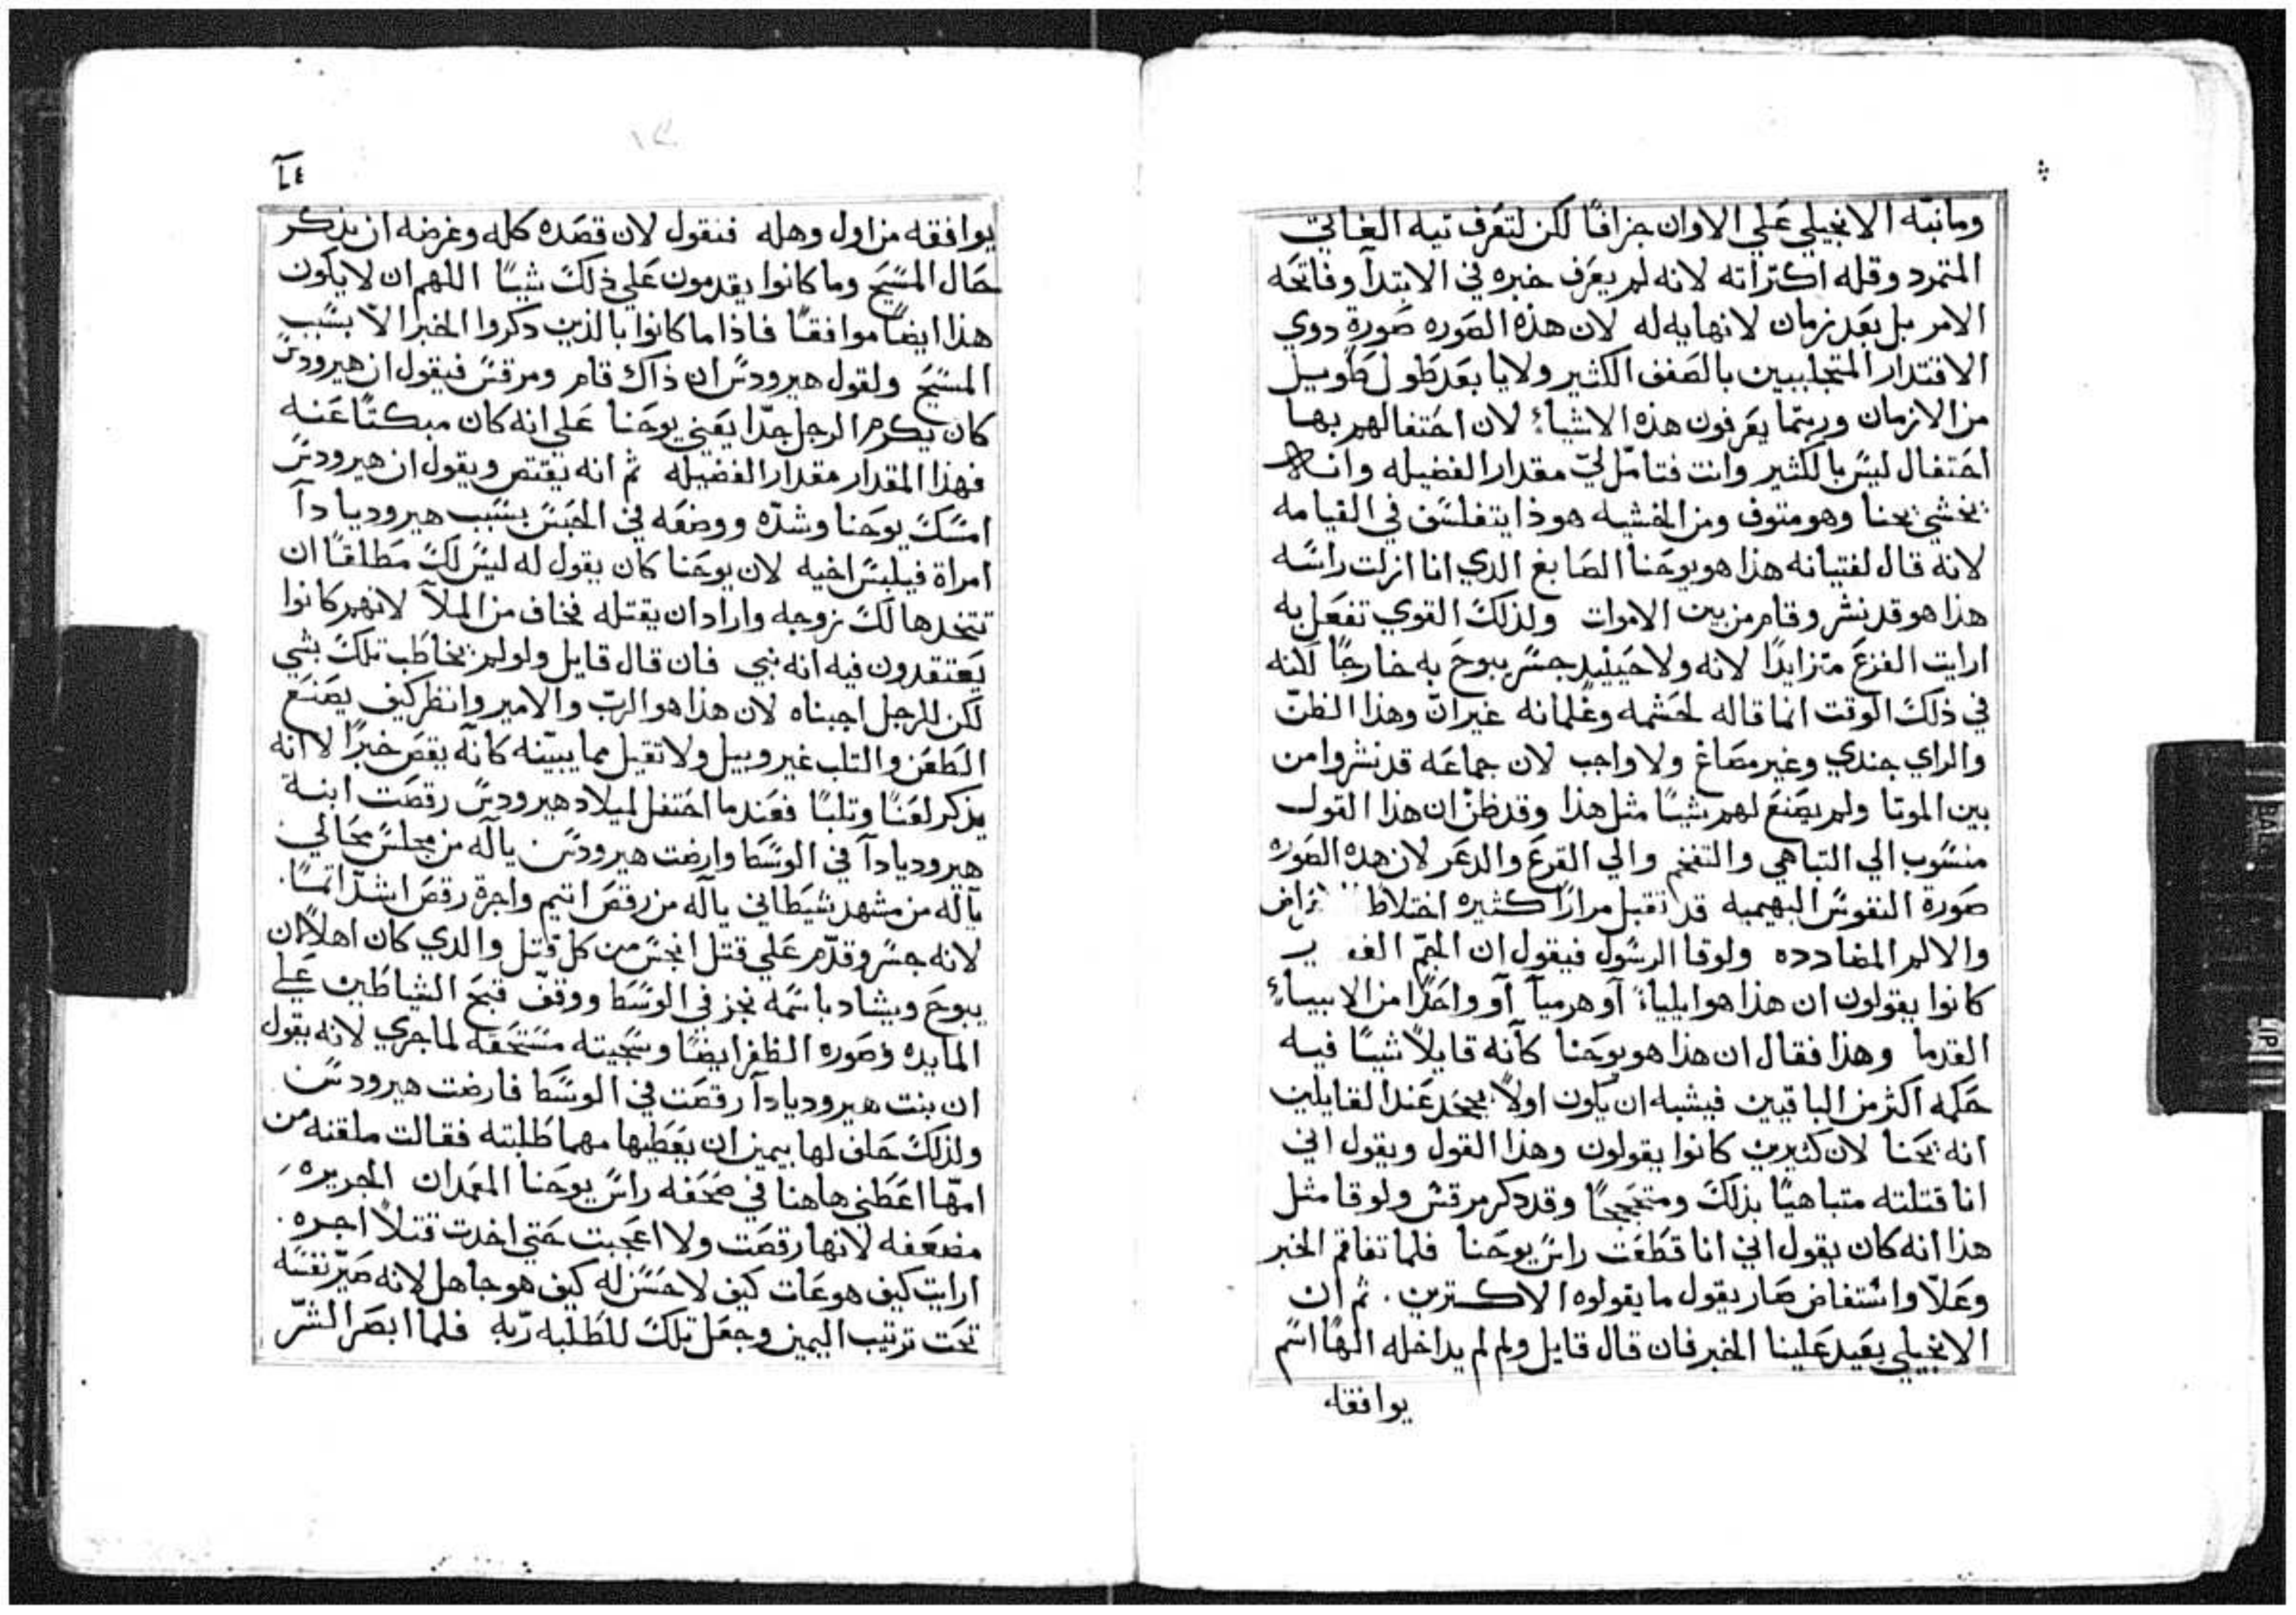 وما نبّه الانجيلي عَلي الاوان جزافًا لكن لتعَرف تيه العَاتي
المتمرد وقله اكتراثه لانه لم يعَرف خبره في الابتدآ وفاتحَه
الامر بل بعَد زمان لانهايه له لان هذه الصَوره صَورة دوي
الاقتدار المتجلببين بالصَفف الكثير ولايا بعَد طَول طَويل
من الازمان وربتما يعَرفون هذه الاشياءَ لان احَتفالهم بها
احَتفال ليسَ بالكثير وانت فتامّل ليّ مقدار الفضيله وانه
يخشي يحنا وهو متوف ومن الخشيه هوذا يتفلسَف في القيامه
لانه قال لفتيانه هذا هو يوحَنا الصَابغ الدي انا ازلت راسَه
هذا هو قد نشر وقام من بين الاموات ولذلكَ القوي تفعَل به
ارايت الفزعَ متزايدًا لانه ولا حَينيدٍ جسَر يبوحَ به خارجًا لكنه
في ذلكَ الوقت انما قاله لحَشمه وغلمانه غير انّ وهذا الظنّ
والراي جندي وغير مصَاغ ولا واجب لان جماعَه قد نشروا من
بين الموتا ولم يصَنعَ لهم شيئًا مثل هذا وقد ظنّ ان هذا القول
منسَوب الي التباهي والتفخم والي الفزعَ والدعَر لان هده الصَوره
صَورة النفوسَ البهميه قد تقبل مرارًا كثيره اختلاط
والالم المضادده ولوقا الرسَول فيقول ان الجمّ
كانوا يقولون ان هذا هو ايلياءَ آو هرميآ آو واحَدًا من الانبياءِ
القدما وهذا فقال ان هذا هو يوحَنا كآنه قايلاً شيئًا فيه
حَكمه اكثر من الباقيين فيشبه ان يكون اولاً يجحَد عَند القايلين
انه يحَنا لان كثيرين كانوا يقولون وهذا القول ويقول اني
انا قتلته متباهيًا بذلكَ ومتبجحًا وقد دكر مرقسَ ولوقا مثل
هذا انه كان يقول اني انا قطَعَت راسَ يوحَنا فلما تفاقم الخبر
وعَلا واسَتفاض صَار يقول ما يقولوه الاكثرين. ثم ان
الانجيلي يعَيد عَلينا الخبر فان قال قايل ولم لم يداخله الهًا اسَم
يوافقه
٢٤
يوافقه من اول وهله فنقول لان قصَده كله وغرضه ان يذكر
حَال المسَيحَ وما كانوا يقدمون عَلي ذلكَ شيئًا اللهم ان لا يكون
هذا ايضًا موافقًا فاذا ما كانوا بالذين دكروا الخبر الاّ بسَبب
المسَيحَ ولقول هيرودسَ ان ذاك قام ومرقسَ فيقول ان هيرودسَ
كان يكرم الرجل جدًا يعَني يوحَنا عَلي انه كان مبكتًا عَنه
فهذا المقدار مقدار الفضيله ثم انه يقتص ويقول ان هيرودسَ
امسَكَ يوحَنا وشدّه ووضعَه في الحَبسَ بسَبب هيرودياداآ
امراة فيلبسَ اخيه لان يوحَنا كان يقول له ليسَ لكَ مطَلقًا ان
تتخدها لكَ زوجه واراد ان يقتله فخاف من الملآ لانهم كانوا
يعَتقدون فيه انه نبي فان قال قايل ولو لم يخاطَب تلكَ بشي
لكن للرجل اجبناه لان هذا هو الربّ والامير وانظر كيف يصَنعَ
الطَعَن والتلب غير وبيل ولا تقيل مما يبيّنه كانه يقصَ خبرًا لا انه
يذكر لعَنًا وتلبًا فعَندما احَتفل لميلاد هيرودسَ رقصَت ابنة
هيرودياداآ في الوسَطَ وارضت هيرودسَ يآله من مجلسَ محَالي
يآله من مشهد شيَطَاني يآله من رقصَ اتيم واجرة رقصَ اشدّ اتمًا.
لانه جسَر وقدّم عَلي قتل انجسَ من كل قتل والدي كان اهلاً ان
يبوحَ ويشاد باسَمه نجز في الوسَطَ ووقف قبحَ الشياطَين عَلي
المايده وصَوره الظفر ايضًا وسَجيته مسَتحَقه لما جري لانه يقول
ان بنت هيرودياداآ رقصَت في الوسَطَ فارضت هيرودسَ
ولذلكَ حَلف لها بيمين ان يعَطَيها مهما طَلبته فقالت ملقنه من
امّها اعَطَني هاهنا في صَحَفه راسَ يوحَنا المعَمدان الجريره
مضعَفه لانها رقصَت ولا اعَجبت حَتي اخدت قتلاً اجره.
ارايت كيف هو عَات كيف لا حَسَن له كيف هو جاهل لانه صَيّر نفسَه
تحَت ترتيب اليمين وجعَل تلكَ للطَلبه ربّه فلما ابصَر الشرّ